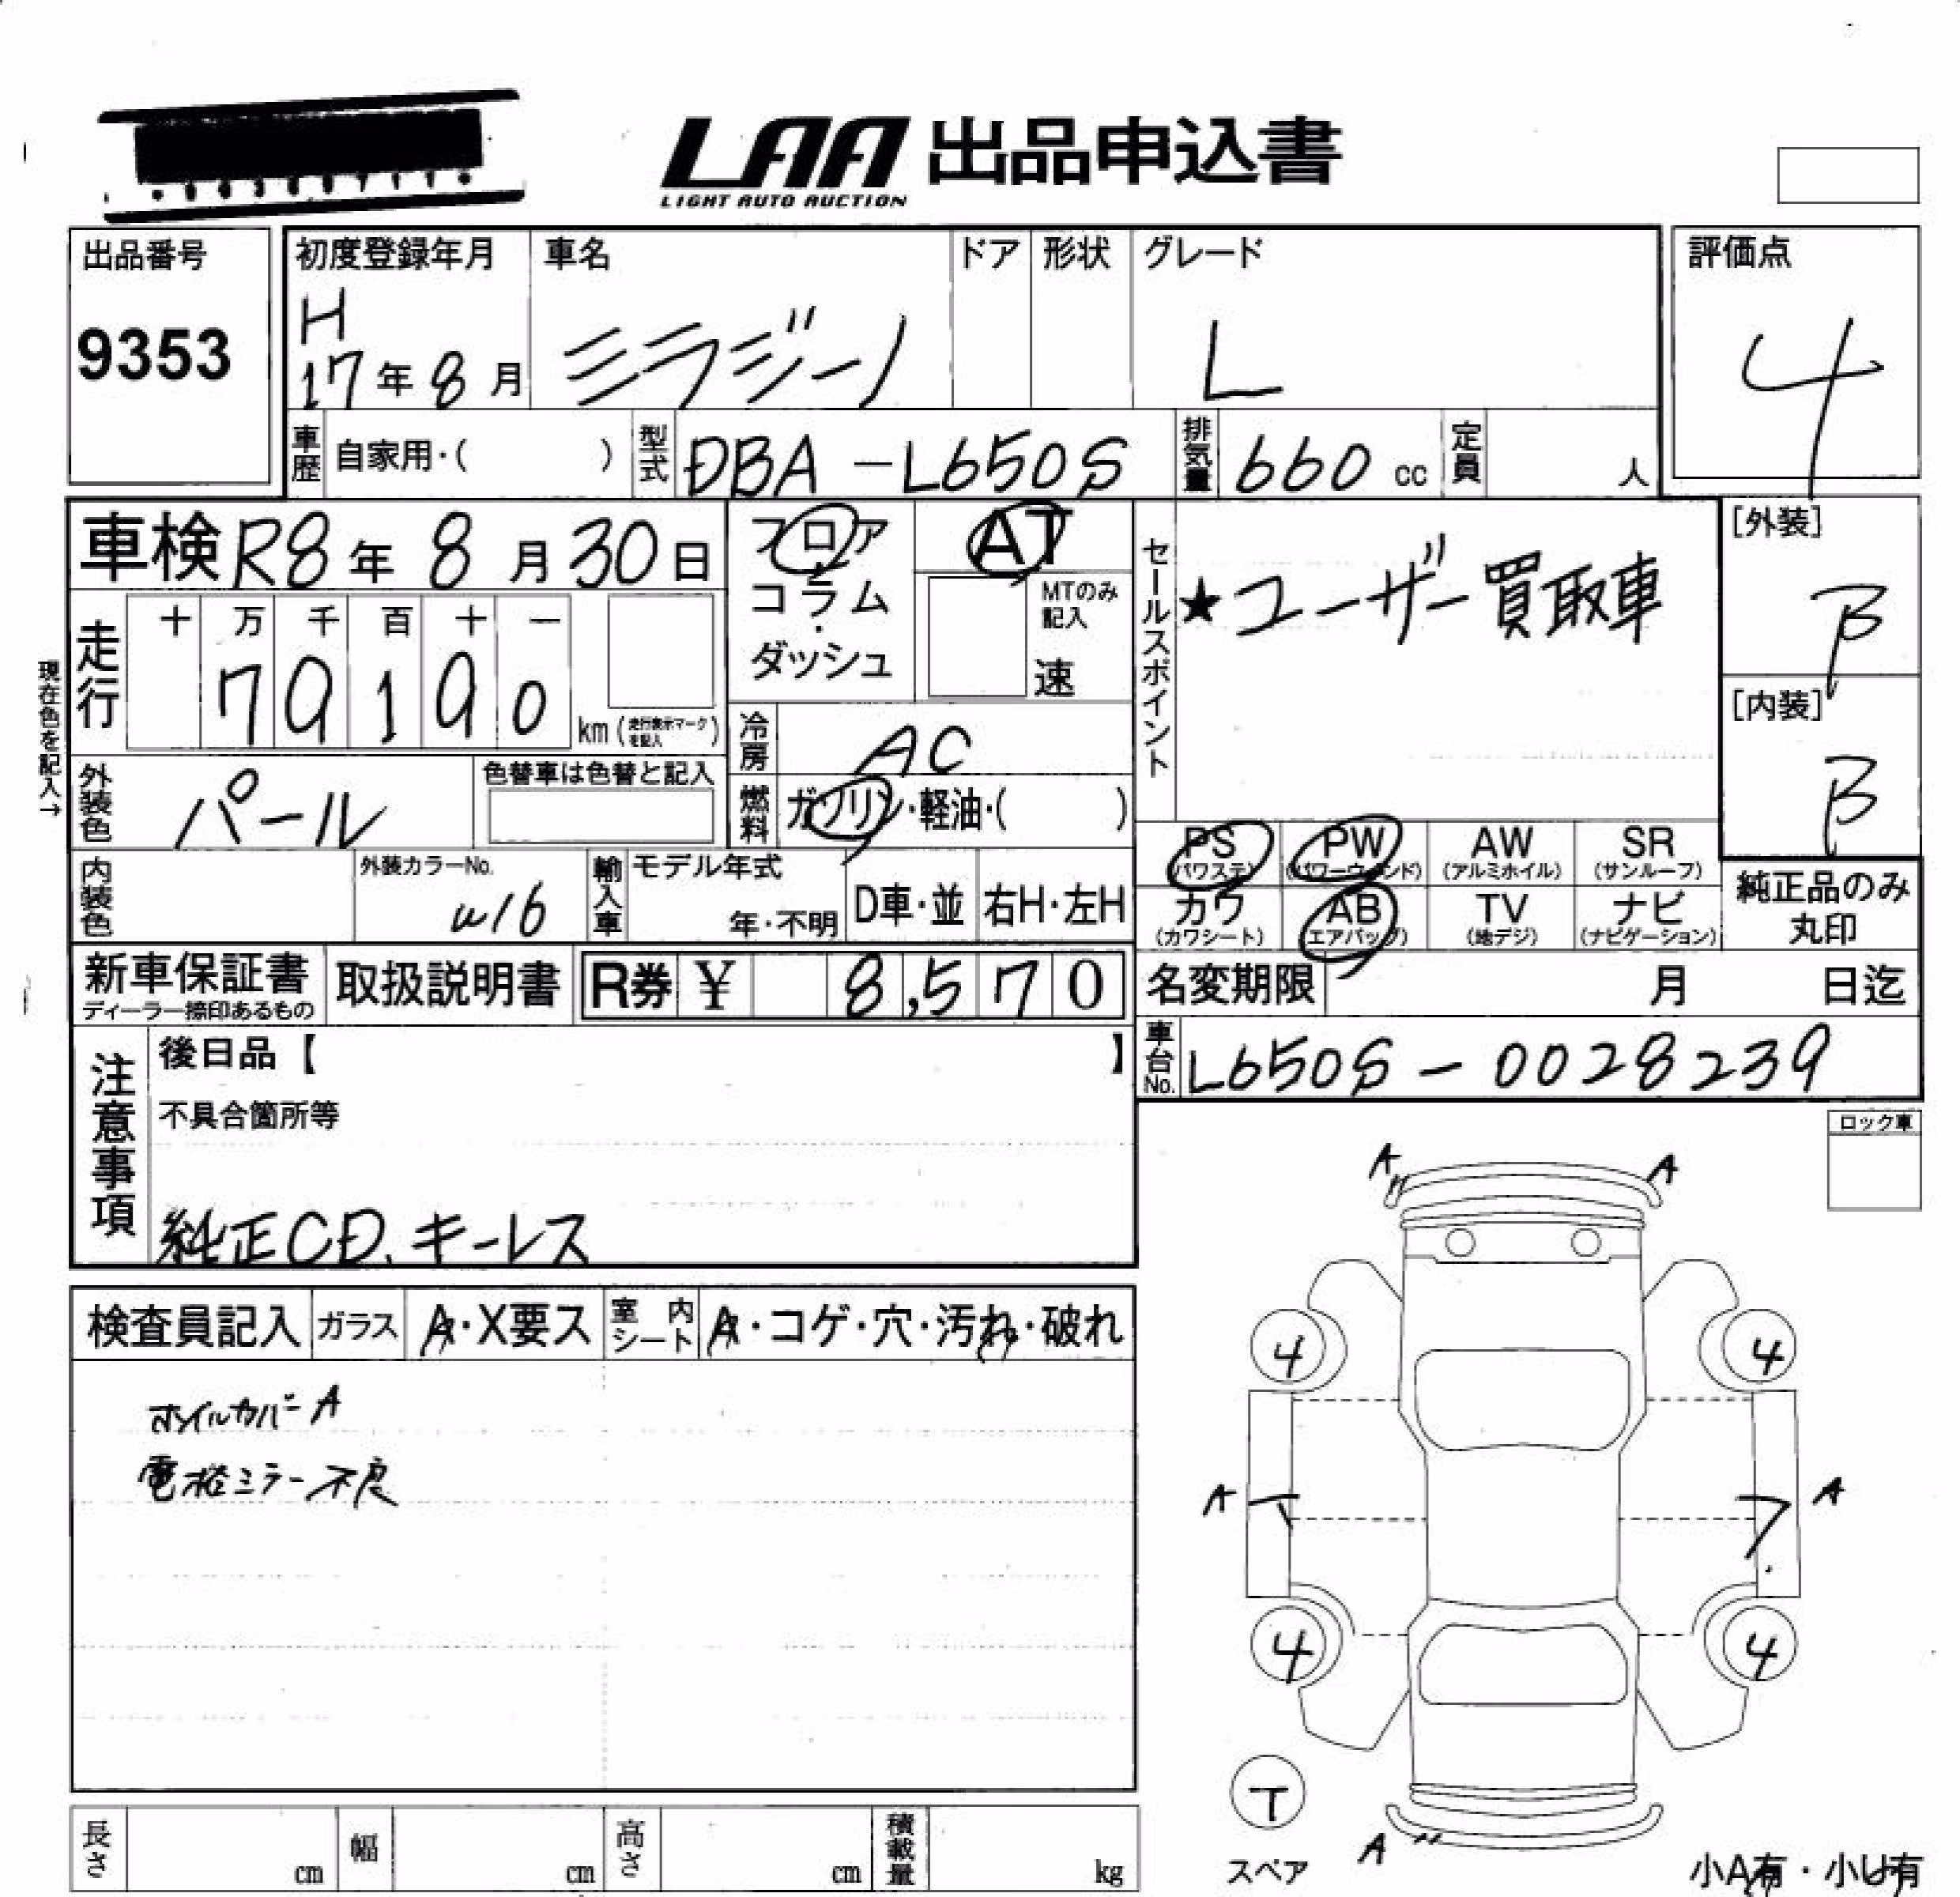 LAA 出品申込書
LIGHT AUTO AUCTION
出品番号
9353
初度登録年月
H
17年8月
車名
ミラジーノ
ドア
形状
グレード
L
評価点
4
車歴
自家用・( )
型式
DBA-L650S
排気量
660 cc
定員
人
車検 R8年 8月 30日
フロア
コラム
・
ダッシュ
AT
MTのみ
記入
速
セールスポイント
★ユーザー買取車
[外装]
B
[内装]
B
現在色を記入→
走行
十 万 千 百 十 一
7 9 1 9 0
km (走行表示マークを記入)
冷房
AC
外装色
パール
色替車は色替と記入
燃料
ガソリン・軽油・( )
内装色
外装カラーNo.
W16
輸入車
モデル年式
年・不明
D車・並
右H・左H
PS
(パワステ)
PW
(パワーウィンド)
AW
(アルミホイル)
SR
(サンルーフ)
カワ
(カワシート)
AB
(エアバッグ)
TV
(地デジ)
ナビ
(ナビゲーション)
純正品のみ
丸印
新車保証書
ディーラー捺印あるもの
取扱説明書
R券 ¥ 8,570
名変期限 月 日迄
車台No.
L650S-0028239
注意事項
後日品【 】
不具合箇所等
純正CD、キーレス
ロック車
検査員記入
ガラス
A・X要ス
室内シート
A・コゲ・穴・汚れ・破れ
ホイルカバーA
電格ミラー不良
A A
4 4
A A
4 4
T
スペア
A
小A有・小U有
長さ cm
幅 cm
高さ cm
積載量 kg